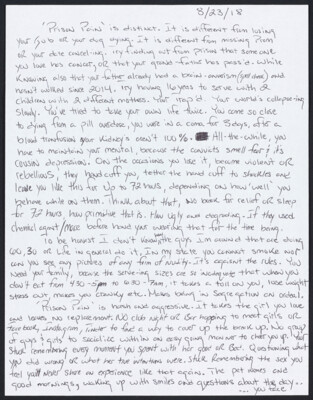 8/23/18
"Prison Pain" is distinct. It is different from losing
your job or your dog dying. It is different from missing Prom
or your date canceling. Try finding out from prison that someone
you love has cancer, or that your grand-father has pass'd. While
Knowing also that your father already had a brain-aneurism (God bless) and
hasn't walked since 2014. Try having 16 years to serve with 2
children with 2 different mothers. Your trap'd. Your world's collapse-ing
slowly. You've tried to take your own life twice. You come so close
to dying from a pill overdose, you were in a coma for 3 days, after a
blood transfusion your kidney's aren't 100%. All-the-while, you
have to maintain your mental, because the convicts smell fear & its
cousin depression. On the occasions you lose it, become violent or
rebellious, they hand cuff you, tether the hand cuff to shackles and
leave you like this for up to 72 hours, depending on how "well" you
behave while on them. Think about that, no break for relief or sleep
for 72 hours, how primative that is. How ugly and degrading. If they used
chemical agent/mace before hand your wearing that for the time being.
To be honest I don't know how the guys I'm around that are doing
60, 30 or life in general do it. In my state you cannot smoke nor
can you see any pictures of any form of nudity. It's against the rules. You
need your family, because the serving sizes are so inadequate that when you
don't eat from 4:30-5pm to 6:30-7am, it takes a toll on you, lose weight
stress out, makes you cranky etc.
"Prison Pain" is harsh and aggressive. It takes the girl you love
and leaves no replacement. NO club night or bar hopping to meet girls or
facebook, instagram, twitter to find a way to cover up the break up. No group
of guys & girls to socialize with in an easy going manner to cheer you up. Your
stuck remembering every moment you spent with her good or bad. Questioning what
you did wrong or what her true intentions were. Stuck remembering the sex you
two yall never share an experience like that again. The pet names and
good mornings, waking up with smiles and questions about the day...